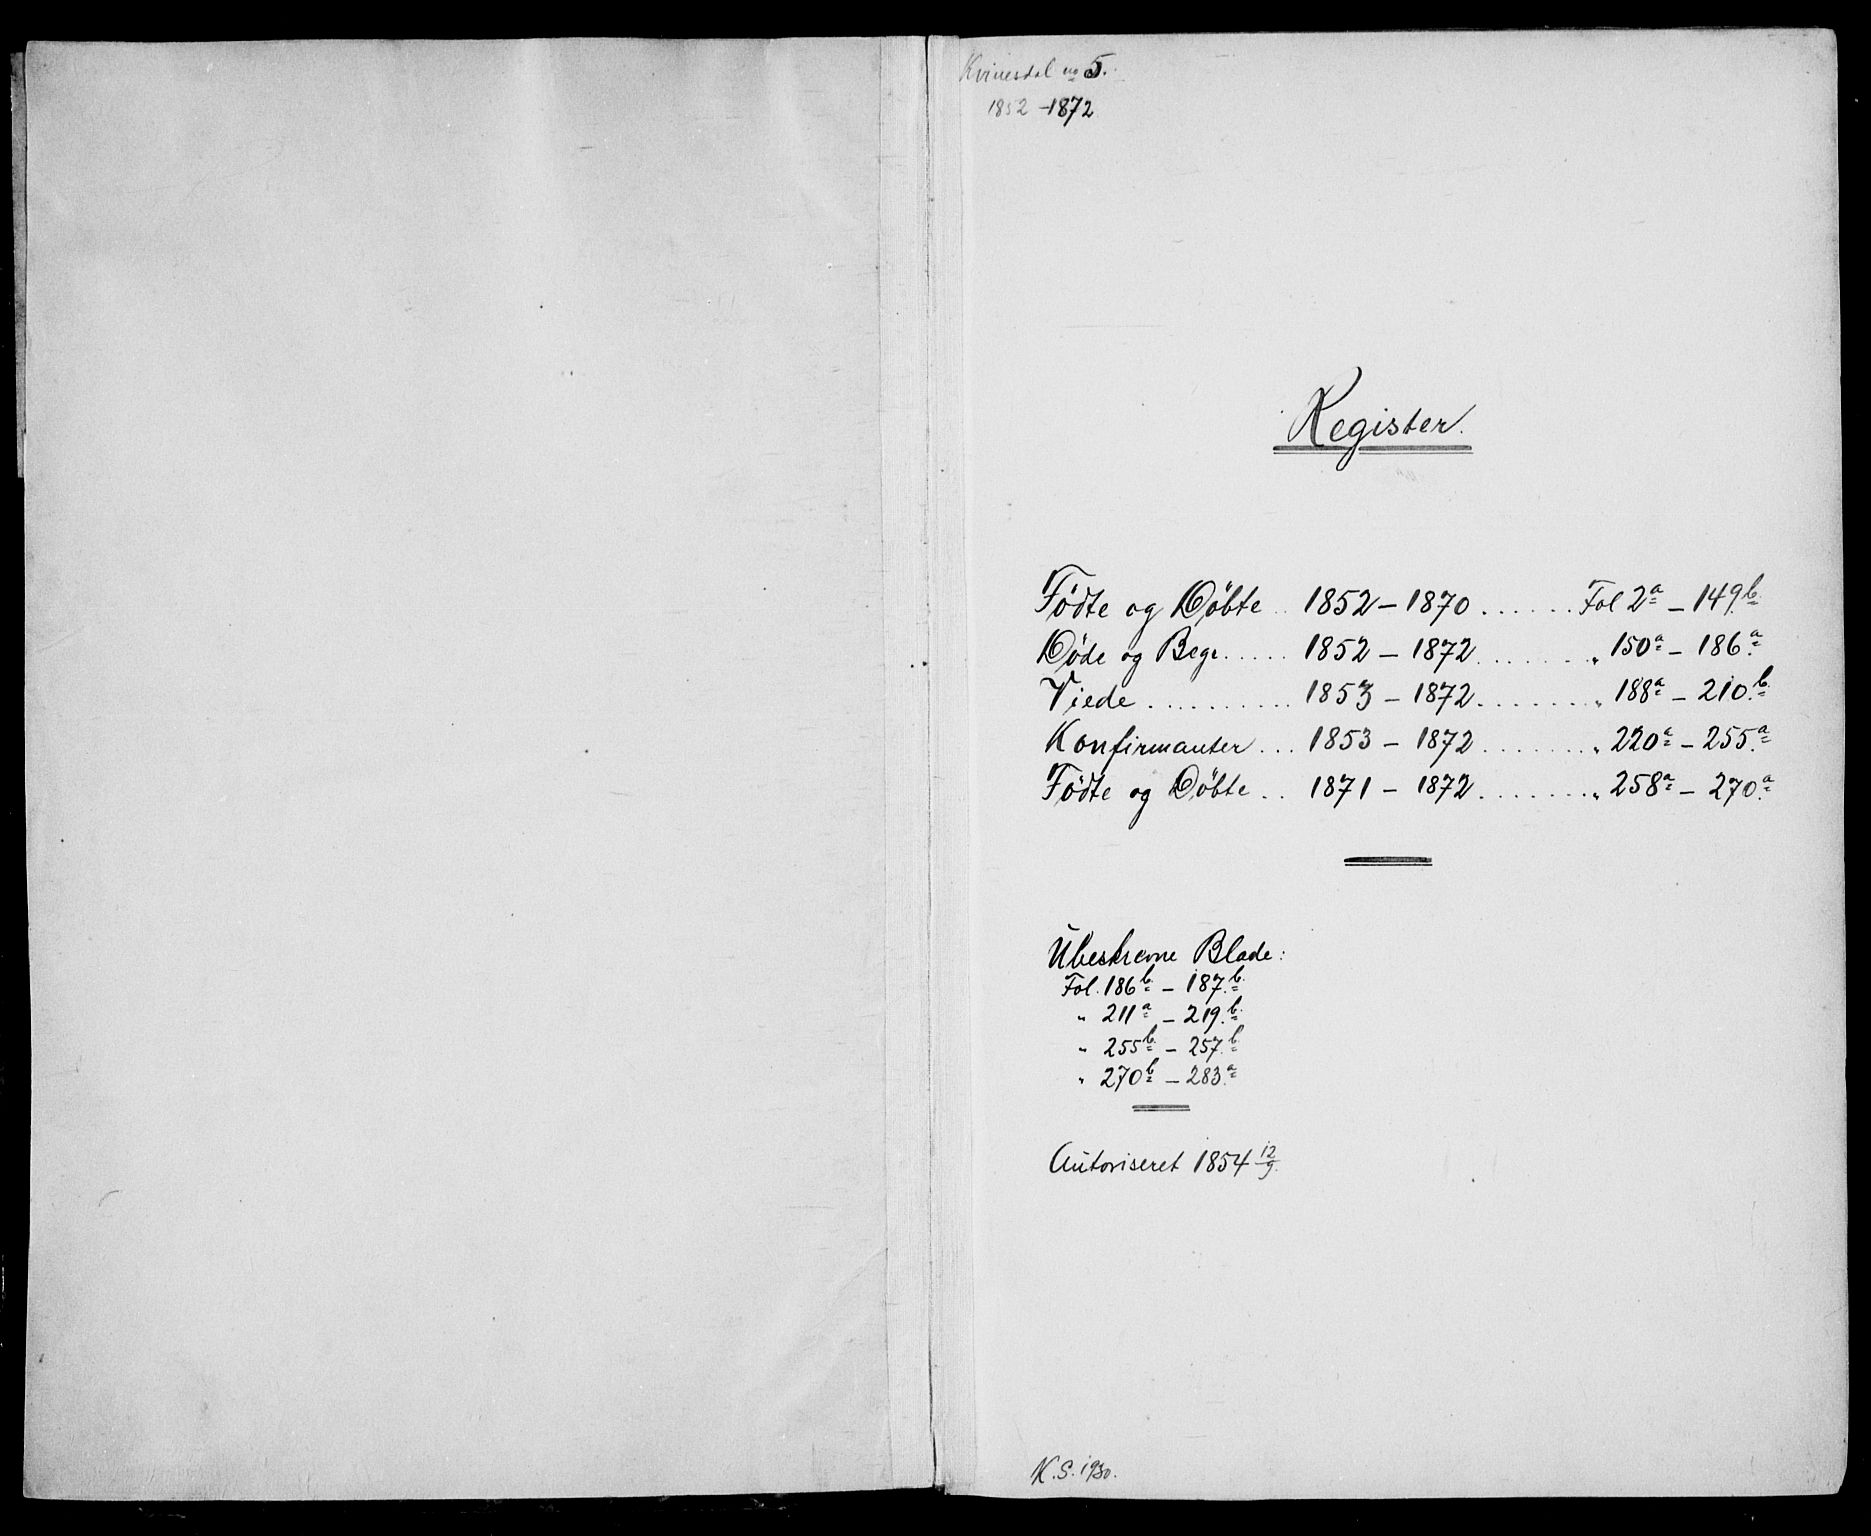 Kvinesdal no 5.
1852-1872
Register.
Fødte og Døbte .. 1852 - 1870 ...... Fol 2a - 149b.
Døde og Begr. .... 1852 - 1872 ....... " 150a - 186a
Viede .......... 1853 - 1872 ....... " 188a - 210b
Konfirmanter ... 1853 - 1872 ....... " 220a - 255a
Fødte og Døbte .. 1871 - 1872 ....... " 258a - 270a
Ubeskrevne Blade:
Fol. 186b - 187b
" 211a - 219b
" 255b - 257b
" 270b - 283a
Autoriseret 1854 12/9.
K.S. 1930.